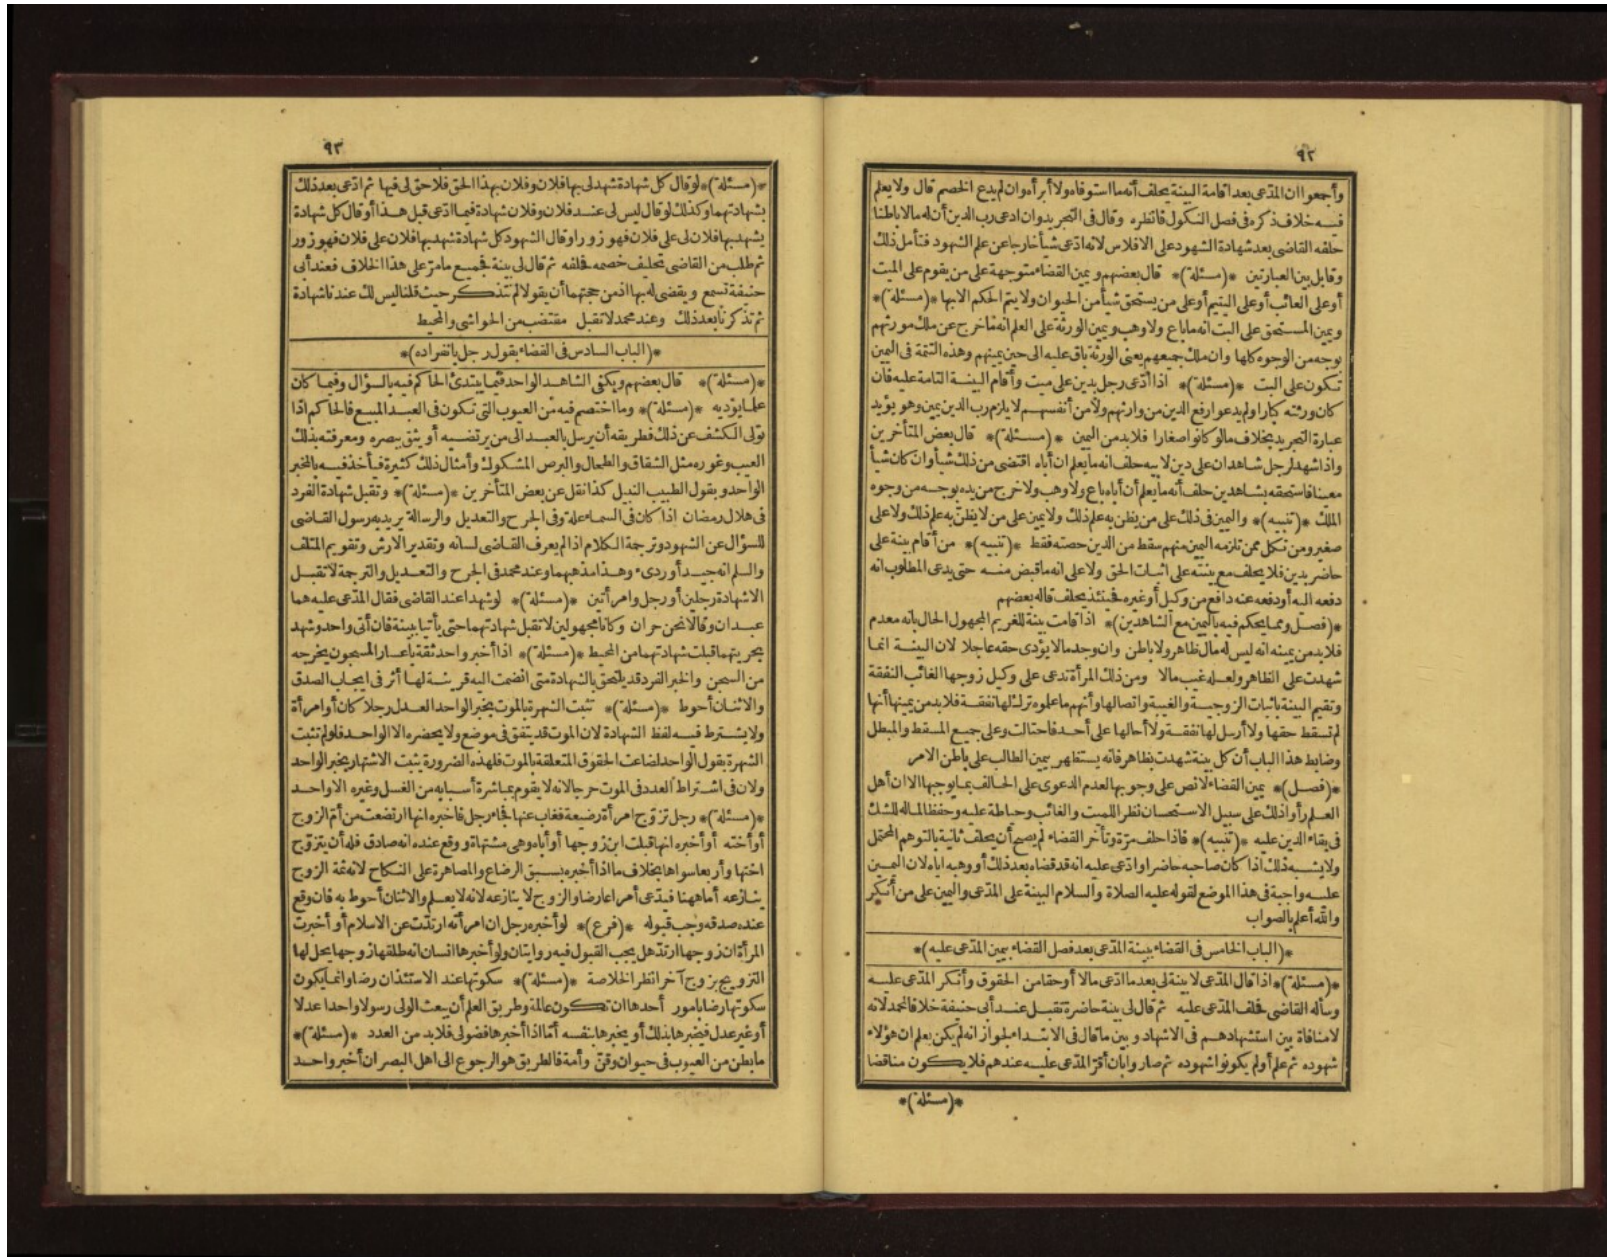 ٩٢
وأجمعوا ان المدّعى بعد اقامة البينة يحلف أنه ما استوفاه ولا أبرأه وان لم يدع الخصم قال ولا يعلم
فيه خلاف ذكره فى فصل النكول فانظره وقال فى التجريد وان ادعى رب الدين أن له مالا باطنا
حلفه القاضى بعد شهادة الشهود على الافلاس لانه ادّعى شيأ خارجا عن علم الشهود فتأمل ذلك
وقابل بين العبارتين *(مسئلة)* قال بعضهم ويمين القضاء متوجهة على من يقوم على الميت
أو على الغائب أو على اليتيم أو على من يستحق شيأ من الحيوان ولا يتم الحكم الابها *(مسئلة)*
ويمين المستحق على البت انه ما باع ولا وهب ويمين الورثة على العلم انه ما خرج عن ملك مورثهم
بوجه من الوجوه كلها وان ملك جميعهم يعنى الورثة باق عليه الى حين يمينهم وهذه التتمة فى اليمين
تكون على البت *(مسئلة)* اذا ادّعى رجل بدين على ميت وأقام البينة التامة عليه فان
كان ورثته كبارا ولم يدعوا رفع الدين من وارثهم ولا من أنفسهم لا يلزم رب الدين يمين وهو يؤيد
عبارة التجريد بخلاف مالو كانوا صغارا فلا بد من اليمين *(مسئلة)* قال بعض المتأخرين
واذا شهد لرجل شاهدان على دين لابيه حلف انه ما يعلم ان أباه اقتضى من ذلك شيأ وان كان شيأ
معينا فاستحقه بشاهدين حلف أنه ما يعلم أن أباه باع ولا وهب ولا خرج من يده بوجه من وجوه
الملك *(تنبيه)* واليمين فى ذلك على من يظن به علم ذلك ولا يمين على من لا يظنّ به علم ذلك ولا على
صغير ومن نكل ممن تلزمه اليمين منهم سقط من الدين حصته فقط *(تنبيه)* من أقام بينة على
حاضر بدين فلا يحلف مع بينته على اثبات الحق ولا على انه ما قبض منه حتى يدعى المطلوب انه
دفعه اليه أو دفعه عنه دافع من وكيل أو غيره فحينئذ يحلف قاله بعضهم
*(فصل ومما يحكم فيه باليمين مع الشاهدين)* اذا قامت بينة للغريم المجهول الحال بانه معدم
فلا بد من يمينه انه ليس له مال ظاهر ولا باطن وان وجد مالا يؤدى حقه عاجلا لان البينة انما
شهدت على الظاهر ولعله غيب مالا ومن ذلك المرأة تدعى على وكيل زوجها الغائب النفقة
وتقيم البينة باثبات الزوجية والغيبة واتصالها وأنهم ما علموه ترك لها نفقة فلا بد من يمينها أنها
لم تسقط حقها ولا أرسل لها نفقة ولا أحالها على أحد فاحتالت وعلى جميع المسقط والمبطل
وضابط هذا الباب أن كل بينة شهدت بظاهر فانه يستظهر بيمين الطالب على باطن الامر
*(فصل)* يمين القضاء لا نص على وجوبها لعدم الدعوى على الحالف بما يوجبها الا ان أهل
العلم رأوا ذلك على سبيل الاستحسان نظرا للميت والغائب وحياطة عليه وحفظا لماله للشك
فى بقاء الدين عليه *(تنبيه)* فاذا حلف مرّة وتأخر القضاء لم يصح أن يحلف ثانية بالتوهم المحتمل
ولا يشبه ذلك اذا كان صاحبه حاضرا وادعى عليه انه قد قضاه بعد ذلك أو وهبه اياه لان اليمين
عليه واجبة فى هذا الموضع لقوله عليه الصلاة والسلام البينة على المدّعى واليمين على من أنكر
والله أعلم بالصواب
*(الباب الخامس فى القضاء ببينة المدّعى بعد فصل القضاء بيمين المدّعى عليه)*
*(مسئلة)* اذا قال المدّعى لا بينة لى بعد ما ادّعى مالا أو حقا من الحقوق وأنكر المدّعى عليه
وسأله القاضى فحلف المدّعى عليه ثم قال لى بينة حاضرة تقبل عند أبى حنيفة خلافا لمحمد لانه
لا منافاة بين استشهادهم فى الاشهاد و بين ما قال فى الابتداء لجواز انه لم يكن يعلم ان هؤلاء
شهوده ثم علم أو لم يكونوا شهوده ثم صاروا بان أقرّ المدّعى عليه عندهم فلا يكون مناقضا
*(مسئلة)*
٩٣
*(مسئلة)* لو قال كل شهادة شهد لى بها فلان وفلان بهذا الحق فلا حق لى فيها ثم ادّعى بعد ذلك
بشهادتهما وكذلك لو قال ليس لى عند فلان وفلان شهادة فيما ادّعى قبل هذا أو قال كل شهادة
يشهد بها فلان لى على فلان فهو زور او قال الشهود كل شهادة شهد بها فلان على فلان فهو زور
ثم طلب من القاضى تحليف خصمه فحلفه ثم قال لى بينة فجميع ما مرّ على هذا الخلاف فعند أبى
حنيفة تسمع ويقضى له بها اذ من حجتهما أن يقولا لم نتذكر حيث قلنا ليس لك عندنا شهادة
ثم تذكرنا بعد ذلك وعند محمد لا تقبل مقتضب من الحواشى والمحيط
*(الباب السادس فى القضاء بقول رجل بانفراده)*
*(مسئلة)* قال بعضهم ويكفى الشاهد الواحد فيما يبتدئ الحاكم فيه بالسؤال وفيما كان
علما يؤديه *(مسئلة)* وما اختصم فيه من العيوب التى تكون فى العبد المبيع فالحاكم اذا
تولى الكشف عن ذلك فطريقه أن يرسل بالعبد الى من يرتضيه أو يثق ببصره ومعرفته بذلك
العيب وغوره مثل الشقاق والطحال والبرص المشكوك وأمثال ذلك كثيرة فيأخذ فيه بالمخبر
الواحد و بقول الطبيب النبيل كذا نقل عن بعض المتأخرين *(مسئلة)* وتقبل شهادة الفرد
فى هلال رمضان اذا كان فى السماء علة وفى الجرح والتعديل والرسالة يريد به رسول القاضى
للسؤال عن الشهود وترجمة الكلام اذا لم يعرف القاضى لسانه وتقدير الارش وتقويم المتلف
والسلم انه جيد أو ردىء وهذا مذهبهما وعند محمد فى الجرح والتعديل والترجمة لا تقبل
الا شهادة رجلين أو رجل وامرأتين *(مسئلة)* لو شهدا عند القاضى فقال المدّعى عليه هما
عبدان وقالا نحن حران وكانا مجهولين لا تقبل شهادتهما حتى يأتيا ببينة فان أتى واحد وشهد
بحريتهما قبلت شهادتهما من المحيط *(مسئلة)* اذا أخبر واحد ثقة باعسار المسجون يخرجه
من السجن والخبر الفرد قد يلتحق بالشهادة متى انضمت اليه قرينة لها أثر فى ايجاب الصدق
والاثنان أحوط *(مسئلة)* تثبت الشهرة بالموت بخبر الواحد العدل رجلا كان أو امرأة
ولا يشترط فيه لفظ الشهادة لان الموت قد يتفق فى موضع ولا يحضره الا الواحد فلو لم تثبت
الشهرة بقول الواحد لضاعت الحقوق المتعلقة بالموت فلهذه الضرورة يثبت الاشتهار بخبر الواحد
ولان فى اشتراط العدد فى الموت حرجا لانه لا يقوم بمباشرة أسبابه من الغسل وغيره الا واحد
*(مسئلة)* رجل تزوّج امرأة رضيعة فغاب عنها فجاء رجل فاخبره انها ارتضعت من أمّ الزوج
أو أخته أو أخبره انها قبلت ابن زوجها أو أباه وهى مشتهاة ووقع عنده انه صادق فله أن يتزوّج
اختها وأربعا سواها بخلاف ما اذا أخبره بسبق الرضاع والمصاهرة على النكاح لانه ثمة الزوج
ينازعه أما ههنا فيدّعى أمرا عارضا والزوج لا ينازعه لانه لا يعلم والاثنان أحوط به فان وقع
عنده صدقه وجب قبوله *(فرع)* لو أخبره رجل ان امرأته ارتدّت عن الاسلام أو أخبرت
المرأة ان زوجها ارتد هل يجب القبول فيه روايتان ولو أخبرها انسان انه طلقها زوجها يحل لها
التزويج بزوج آخر انظر الخلاصة *(مسئلة)* سكوتها عند الاستئذان رضا وانما يكون
سكوتها رضا بامور أحدها ان تكون عالمة وطريق العلم أن يبعث الولى رسولا واحدا عدلا
أو غير عدل فيخبرها بذلك أو يخبرها بنفسه أمّا اذا أخبرها فضولى فلا بد من العدد *(مسئلة)*
ما بطن من العيوب فى حيوان وقنّ وأمة فالطريق هو الرجوع الى اهل البصر ان أخبر واحد